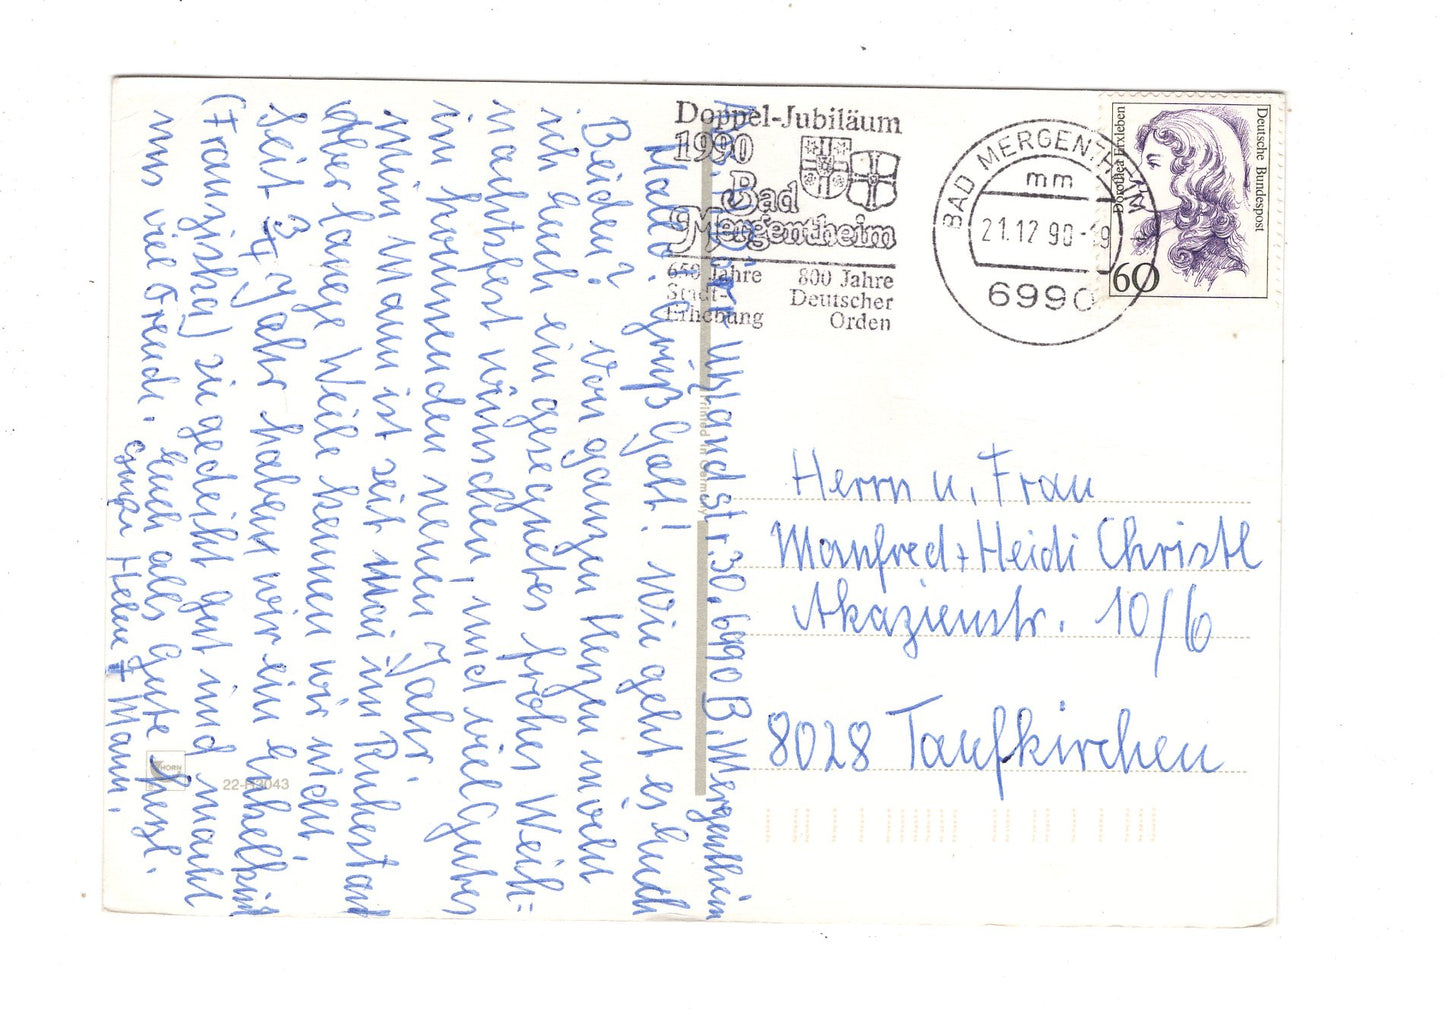 Doppel-Jubiläum
1990
Bad
Mergentheim
650 Jahre
Stadt-
Erhebung
800 Jahre
Deutscher
Orden
BAD MERGENTHEIM
mm
21.12.90-19
6990
Deutsche Bundespost
Dorothea Erxleben
60
Uhlandstr. 30, 6990 B. Mergentheim
Grüß Gott! Wie geht es Euch
Beiden? Von ganzen Herzen möcht
ich Euch ein gesegnetes frohes Weih=
nachtsfest wünschen, und viel Gutes
im kommenden neuen Jahr.
Mein Mann ist seit Mai im Ruhestand
aber lange Weile kennen wir nicht.
Seit 3/4 Jahr haben wir ein Enkelkind
(Franziska) sie gedeiht gut und macht
uns viel Freude. Euch alles Gute
Helene + Mann.
Herrn u. Frau
Manfred + Heidi Christl
Akazienstr. 10/6
8028 Taufkirchen
Printed in Germany
HORN
22-H3043